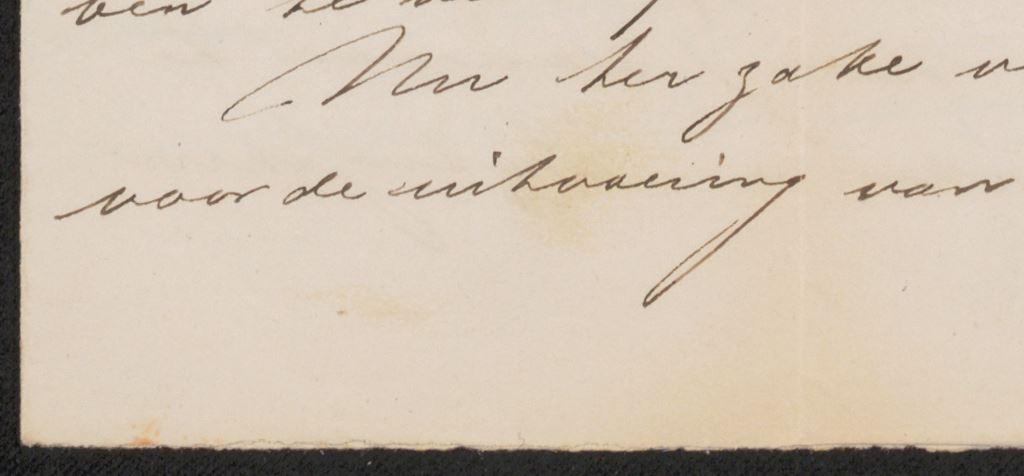 ben
Nu ter zake
voor de uitvoering van